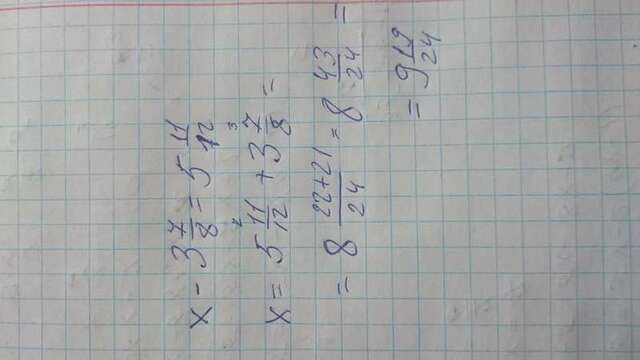 x - 3 7/8 = 5 11/12
x = 5 11/12 ² + 3 7/8 ³ =
= 8 22+21/24 = 8 43/24 =
= 9 19/24